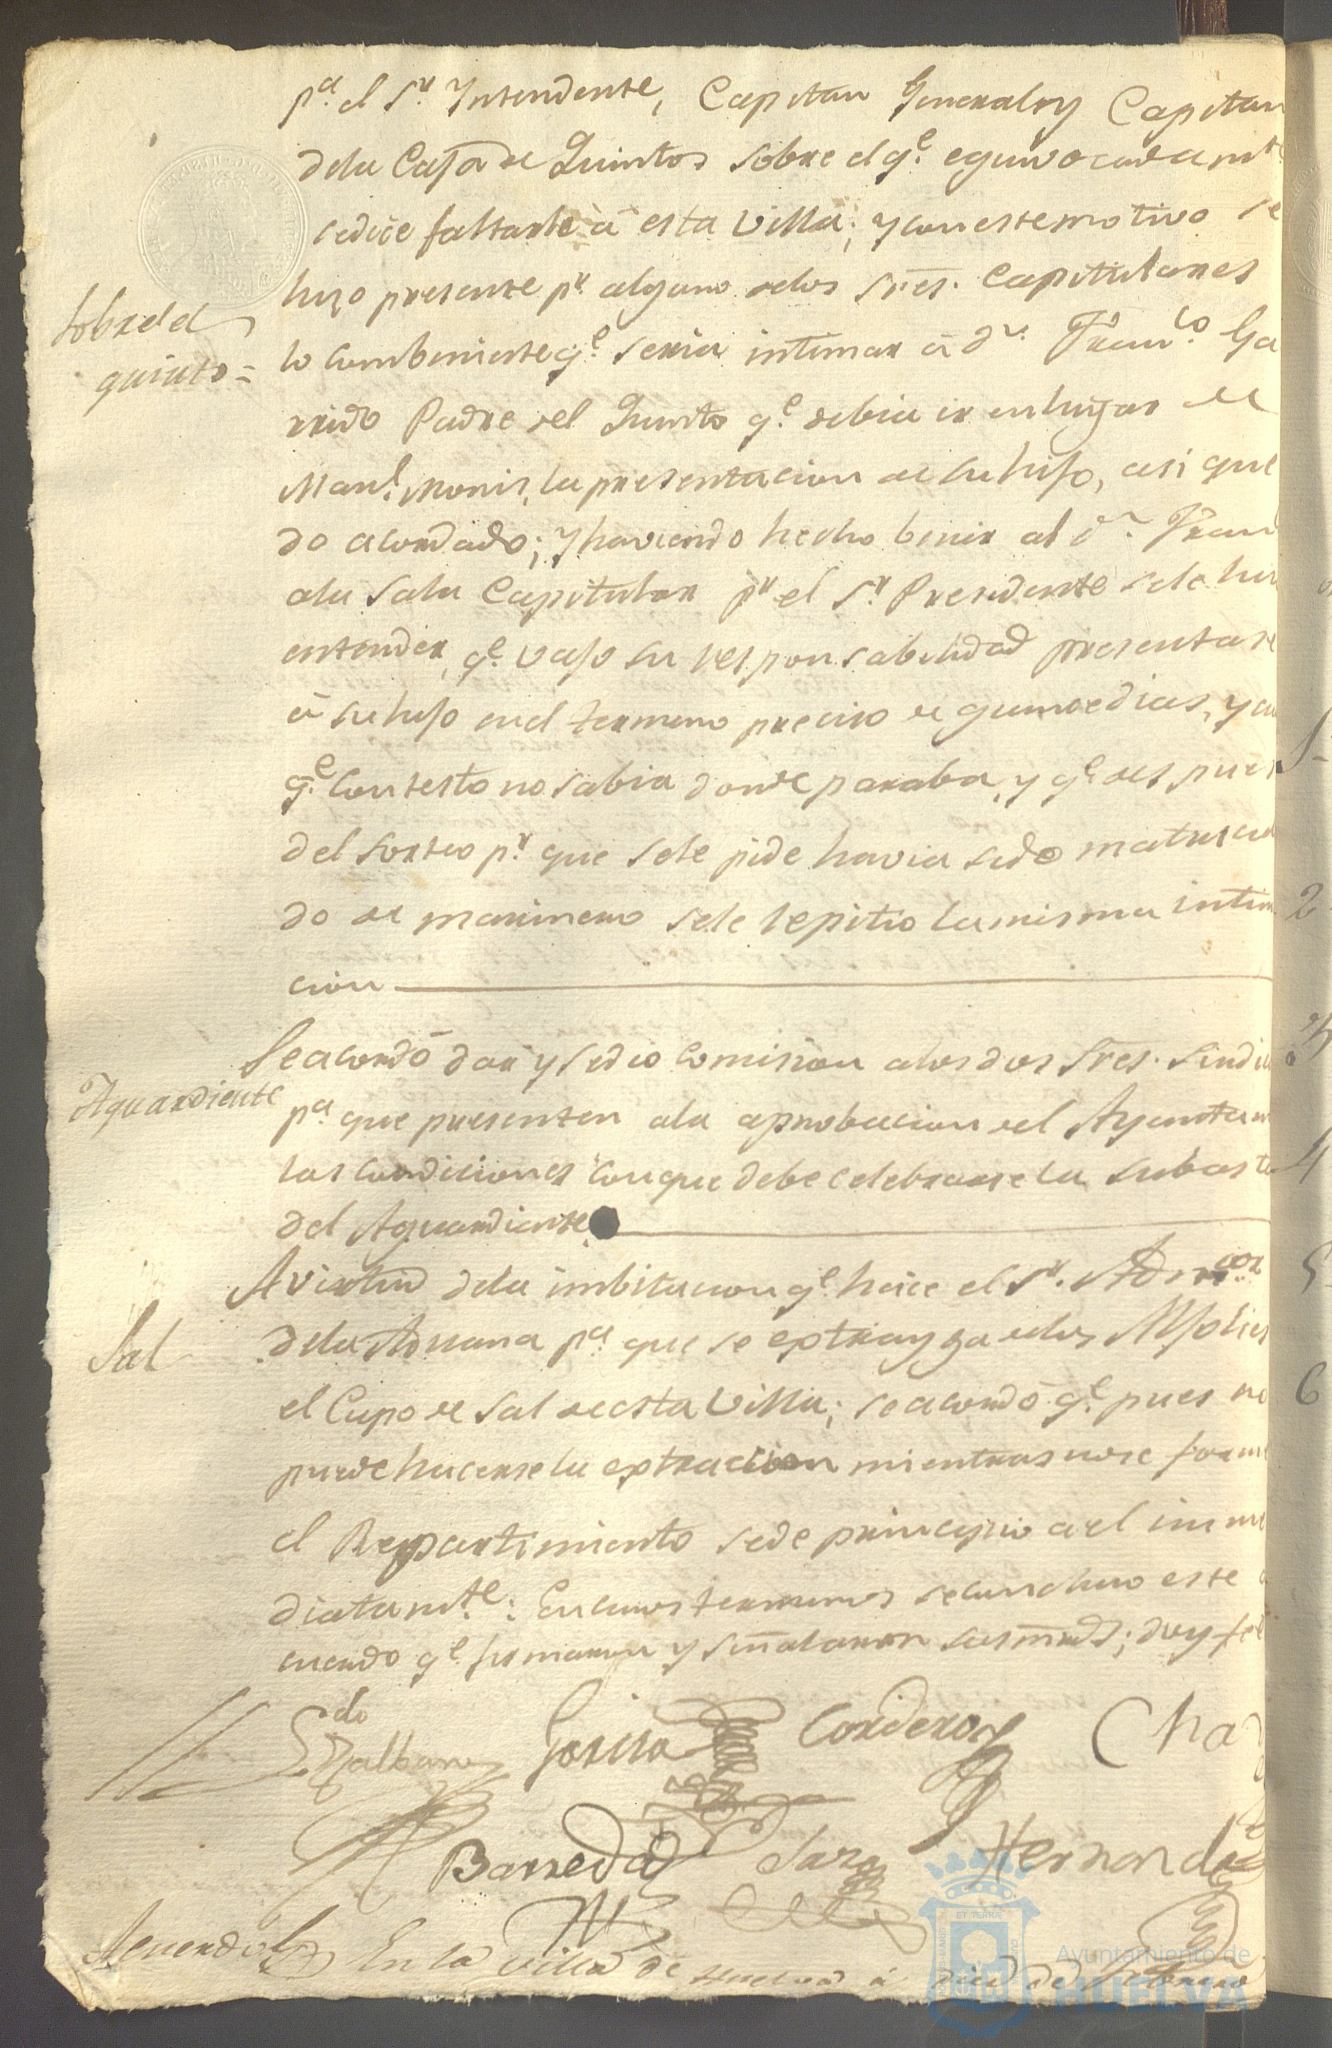 pa. el Sr. Yntendente, Capitan General y Capitan
dela Casa de Quintos sobre el qe. equivocadamte
sedice faltarle â esta Villa; y con este motivo se
hizo presente pr. alguno delos Sres. Capitulares
Sobre el
quinto=
lo combeniente qe. seria intimar â Dn. Franco. Ga
rrido Padre del Quinto qe. debia ir en lugar de
Manl. Monis, la presentacion de su hijo, asi que
do acordado; y haviendo hecho benir al dn. Fran
ala Sala Capitular pr. el Sr. Presidente sele hi
entender, qe. vajo su responsabilidad presentase
â su hijo en el termino preciso de quince dias, y
qe. contesto no sabia donde paraba, y qe. despues
del sorteo pr. que sele pide havia sido matricula
do de marinero sele repitio la misma intim
cion
Aguardiente
Se acordó dar y se dio comision alos dos Sres. Sindi
pa. que presenten ala aprobacion del Ayuntam
las condiciones con que debe celebrarse la subasta
del Aguardiente
Sal
A virtud dela imbitacion qe. hace el Sr. Admor.
dela Aduana pa. que se extrayga delos Alfolies
el Cupo de Sal de esta Villa; se acordó qe. pues no
puede hacerse la extraccion mientras no se forme
el Repartimiento se de principio a el imme
diatamte.: En cuios terminos se concluio este
cuerdo qe. firmaron y señalaron sus mrds; doy fee
Ldo
Garcia Cordero Cha
Barreda Hernand
Acuerdo En la Villa de Huelva á diez de Febrero
ET TERRAE
Ayuntamiento de
HUELVA
2
4
5
6